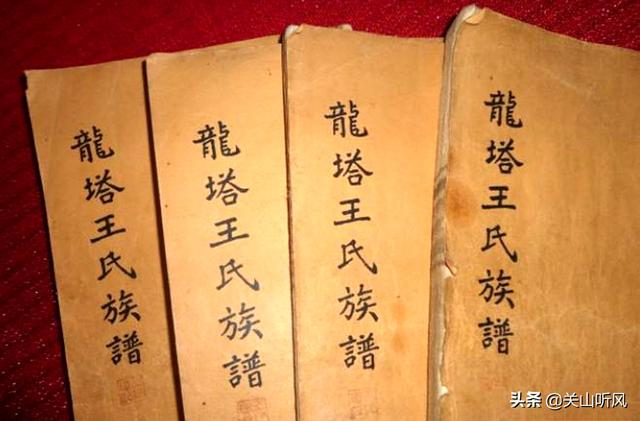 龍塔王氏族譜
龍塔王氏族譜
龍塔王氏族譜
龍塔王氏族譜
头条 @关山听风